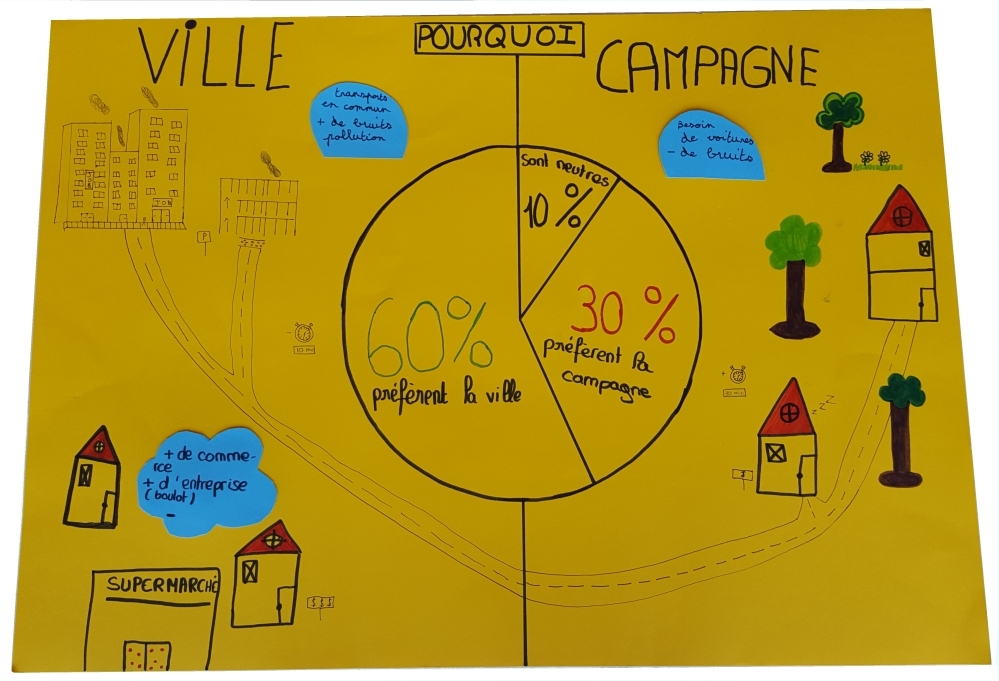 POURQUOI
VILLE
CAMPAGNE
transports
en commun
+ de bruits
pollution
Besoin
de voitures
- de bruits
Sont neutres
10 %
60%
préfèrent la ville
30 %
préfèrent la
campagne
JOB
P
+ de comme-
rce
+ d'entreprise
(boulot)
-
SUPERMARCHÉ
$$$
$
zzz
-
+